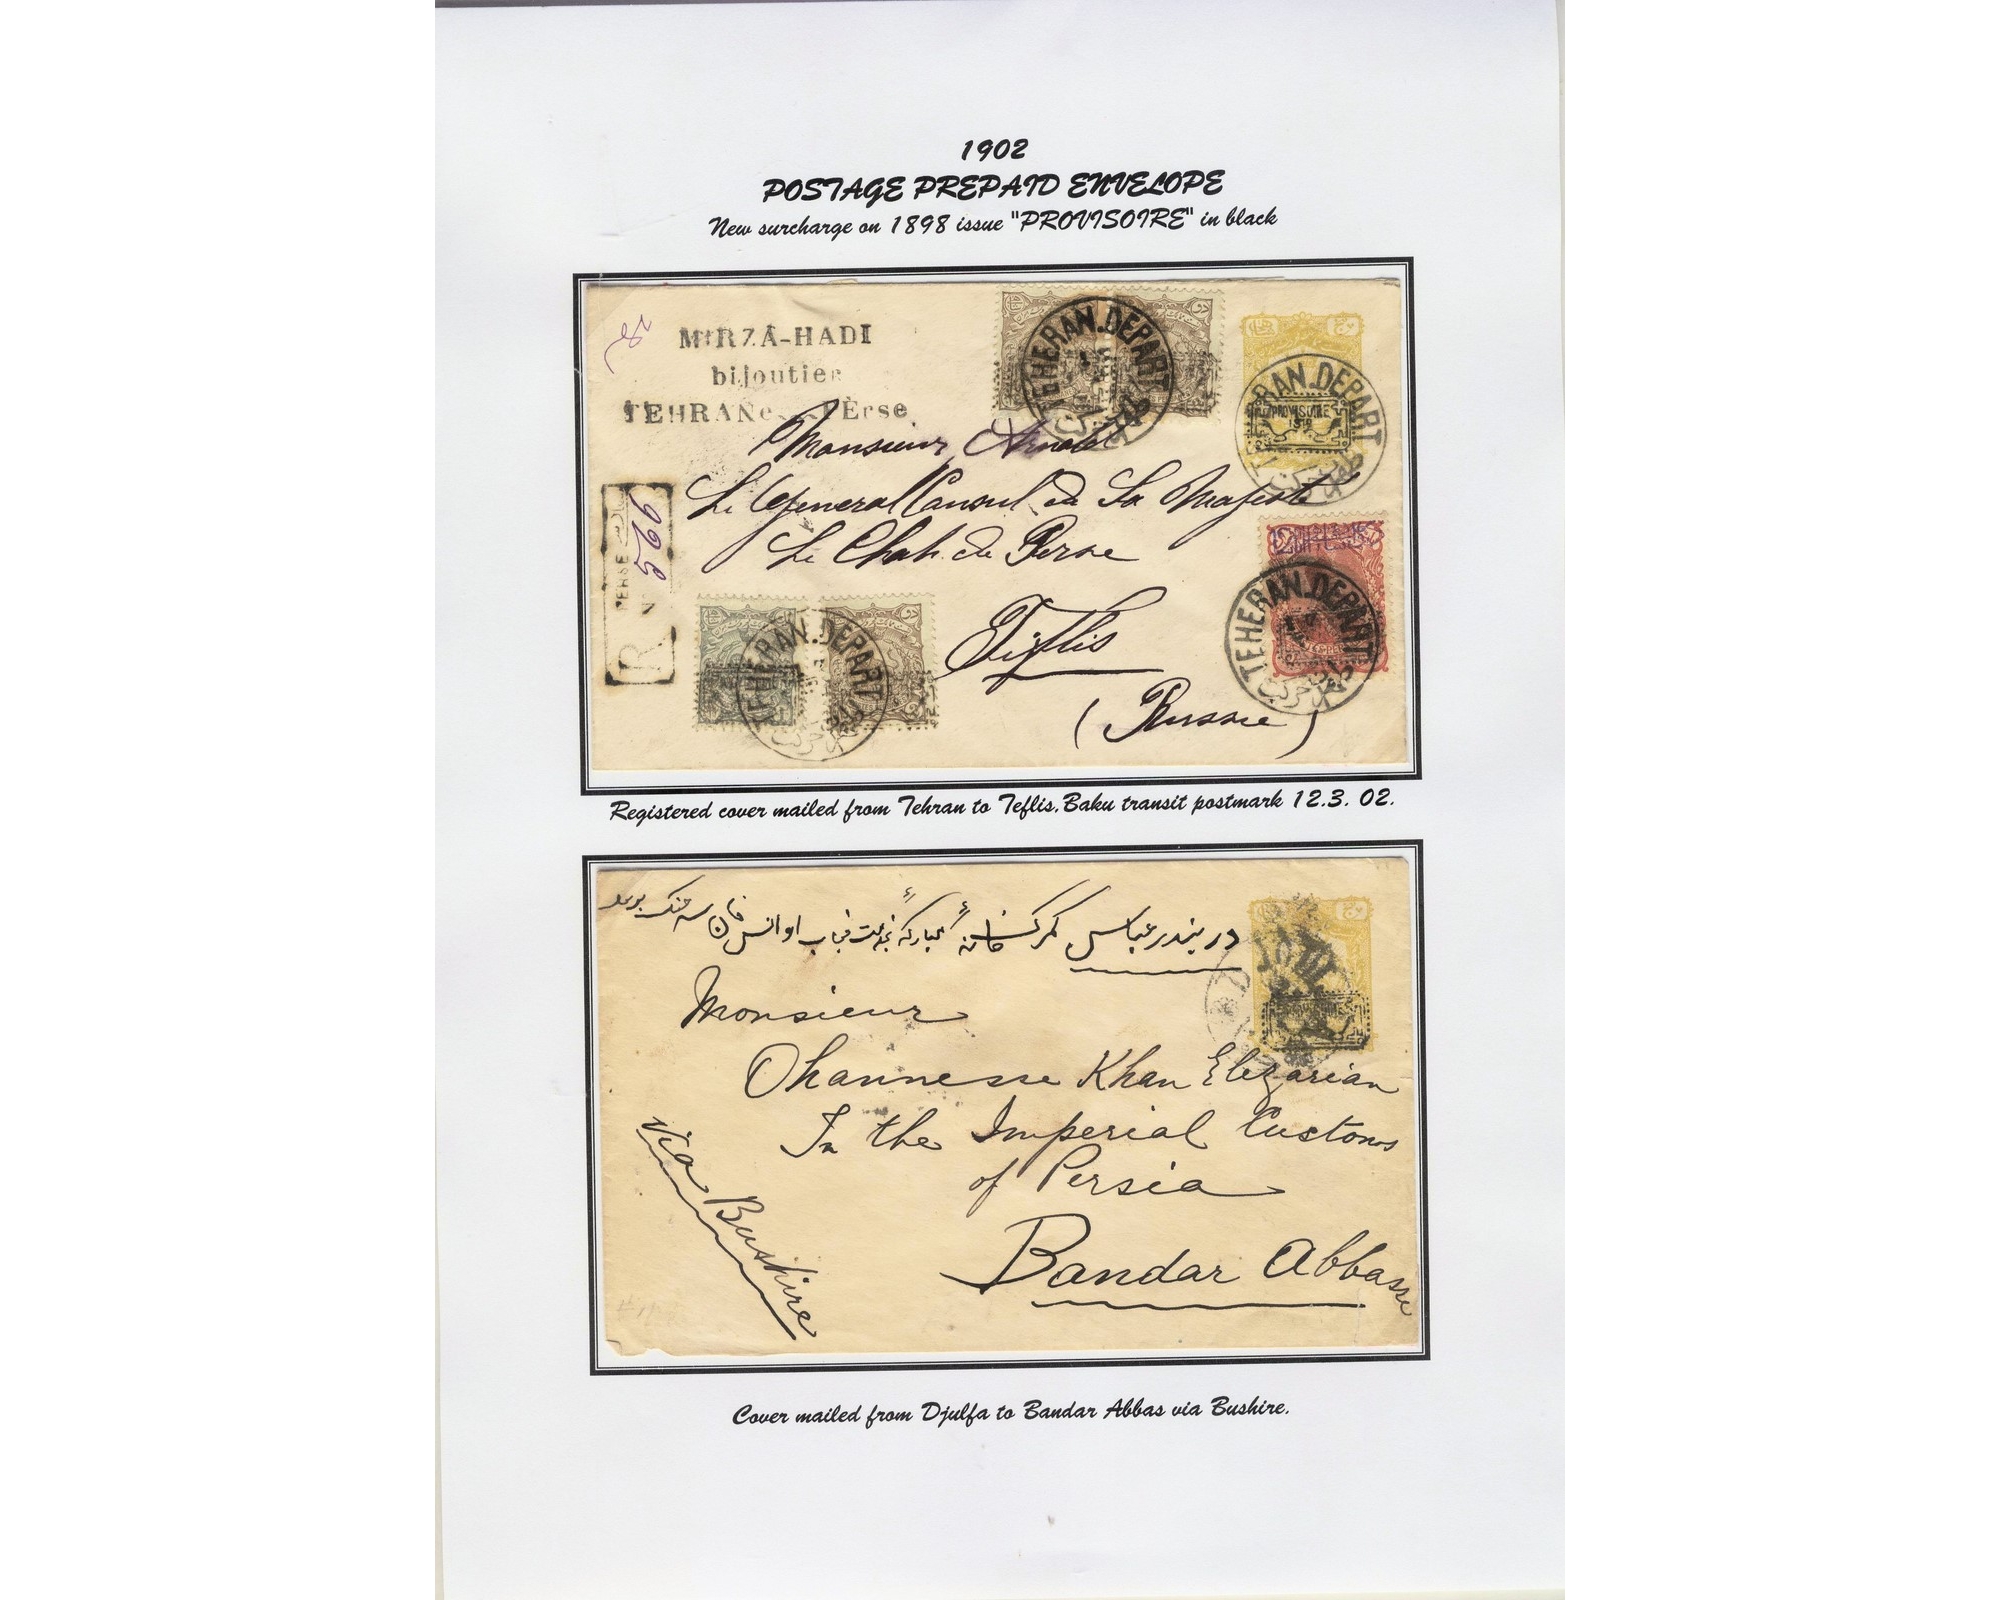 1902
POSTAGE PREPAID ENVELOPE
New surcharge on 1898 issue "PROVISOIRE" in black
MIRZA-HADI
bijoutier
TEHRANe Perse
Monsieur Arnold
Le General Consul de Sa Majesté
Le Chah de Perse
Tiflis
(Russie)
R
PERSE
N 925
TEHERAN.DEPART
TEHERAN.DEPART
PROVISOIRE
1319
12
TEHERAN.DEPART
TEHERAN.DEPART
Registered cover mailed from Tehran to Teflis. Baku transit postmark 12.3. 02.
در بندر عباس گمرکخانهٔ مبارکهٔ اوانس خان
Monsieur
Ohannesse Khan Elezarian
In the Imperial Customs
of Persia
Bandar Abbasse
Via Bushire
PROVISOIRE
Cover mailed from Djulfa to Bandar Abbas via Bushire.